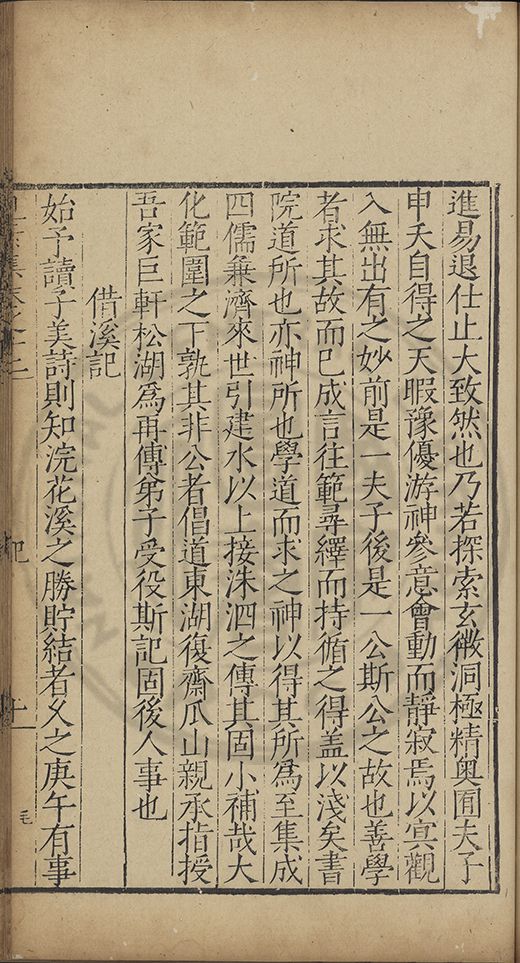 進易退仕止大致然也乃若探索玄微洞極精奥囿夫子
申夭自得之天暇豫優游神參意會動而靜寂焉以㝠觀
入無出有之妙前是一夫子後是一公斯公之故也善學
者求其故而已成言往範尋繹而持循之得盖以淺矣書
院道所也亦神所也學道而求之神以得其所爲至集成
四儒兼濟來世引建水以上接洙泗之傳其固小補哉大
化範圍之下孰其非公者倡道東湖復齋瓜山親承指授
吾家巨軒松湖爲再傳弟子受役斯記固後人事也
借溪記
始予讀子美詩則知浣花溪之勝貯結者久之庚午有事
集卷之十二
記
十一
毛